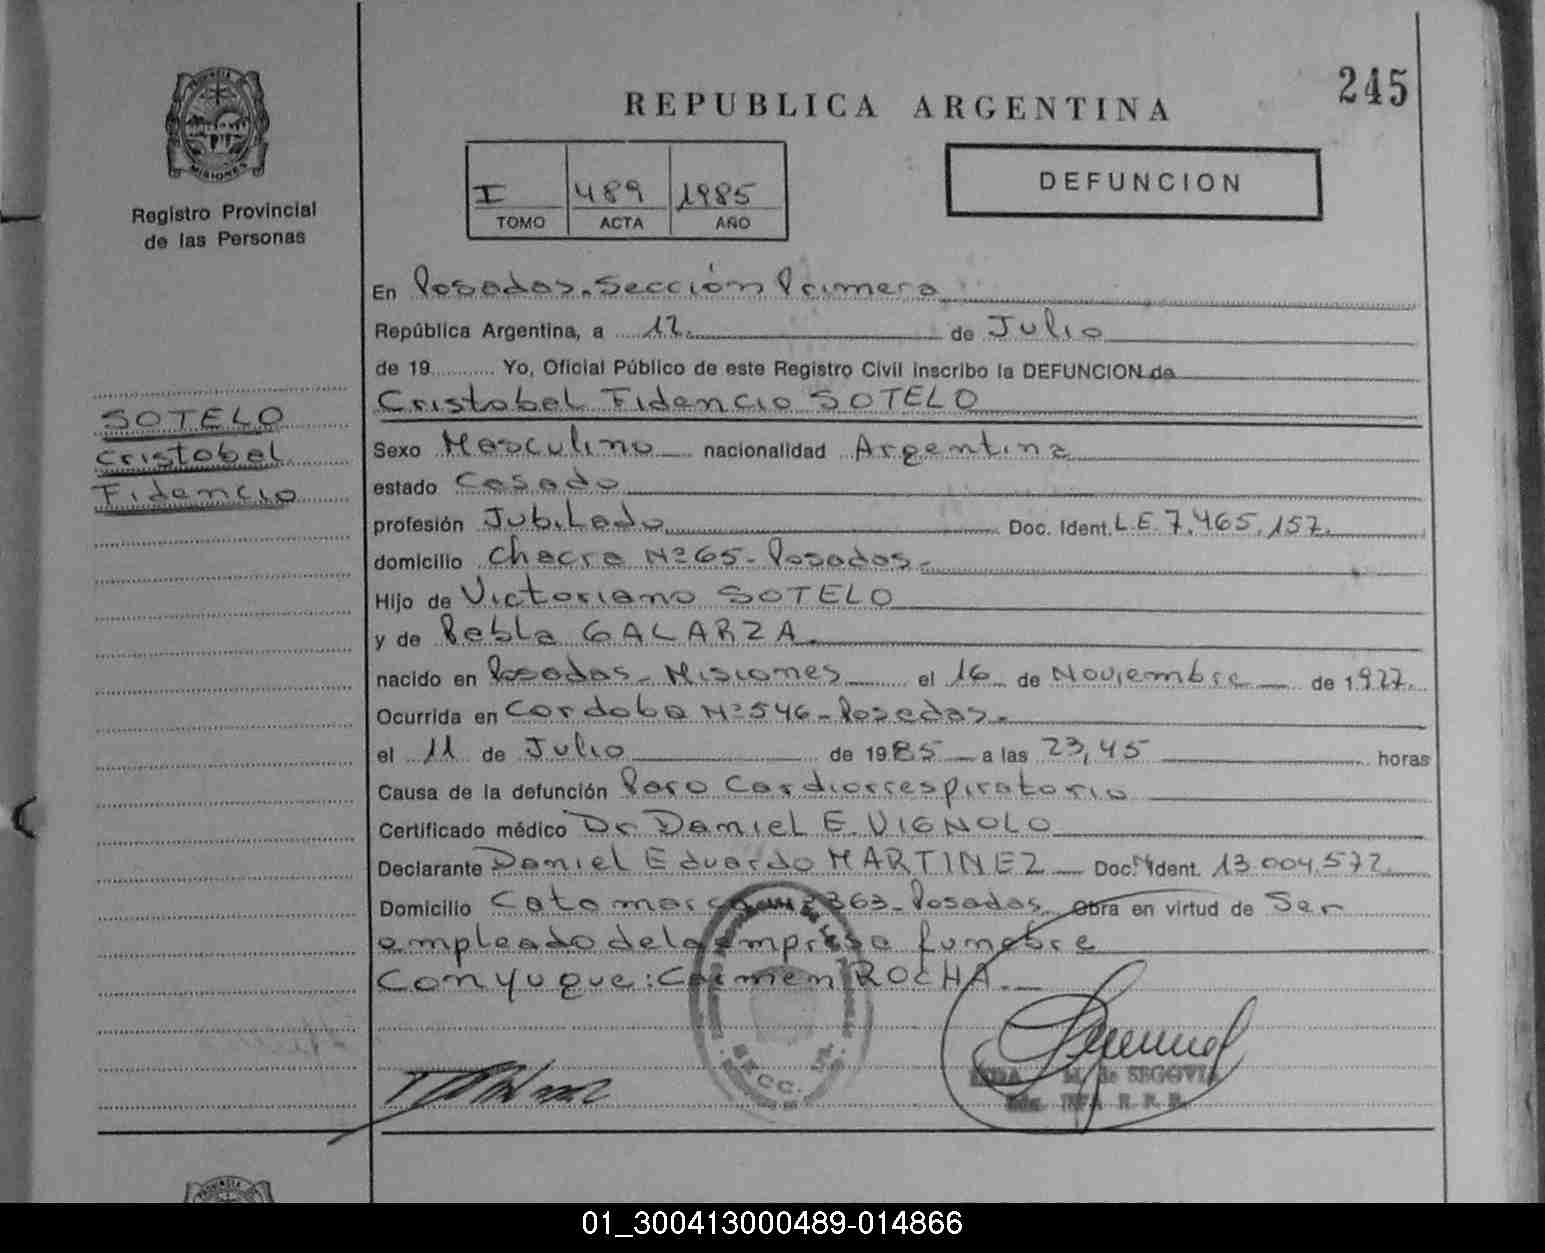 245
REPUBLICA ARGENTINA
PROVINCIA DE
MISIONES
Registro Provincial
de las Personas
I 489 1985
TOMO ACTA AÑO
DEFUNCION
En Posadas. Sección Primera
República Argentina, a 12. de Julio
de 19 Yo, Oficial Público de este Registro Civil inscribo la DEFUNCION de
Cristobal Fidencio SOTELO
SOTELO
Cristobal
Fidencio
Sexo Masculino nacionalidad Argentina
estado Casado
profesión Jubilado Doc. Ident. L.E. 7.465.157.
domicilio Chacra Nº 65 - Posadas.
Hijo de Victoriano SOTELO
y de Pabla GALARZA.
nacido en Posadas - Misiones el 16 de Noviembre de 1.927.
Ocurrida en Cordoba Nº 546 - Posadas.
el 11 de Julio de 1985 a las 23,45 horas
Causa de la defunción Paro Cardiorrespiratorio
Certificado médico Dr. Daniel E. VIGNOLO
Declarante Daniel Eduardo MARTINEZ Doc. Ident. 13.004.572.
Domicilio Catamarca Nº 2363 - Posadas Obra en virtud de Ser
empleado de la empresa funebre
Conyugue: Carmen ROCHA.
SECC. 1a.
M. de SEGOVIA
R. P. P.
01_300413000489-014866